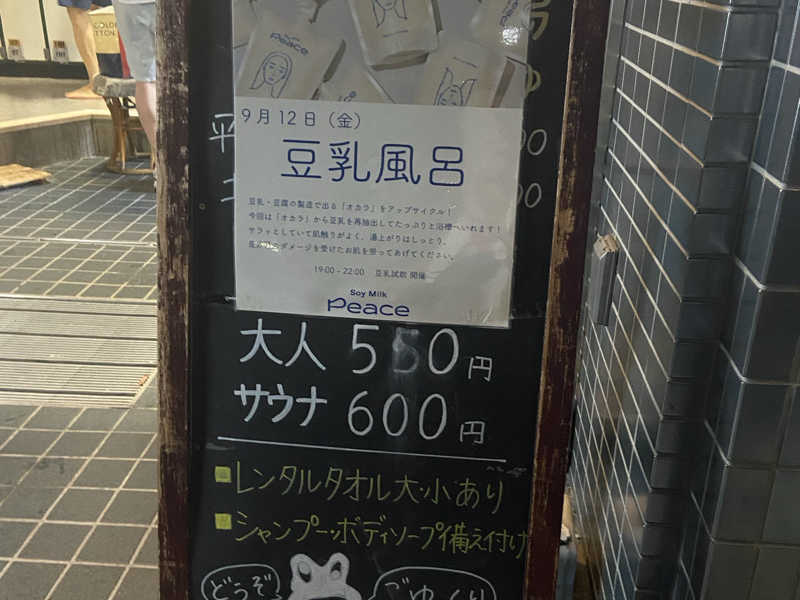 Peace
9月12日（金）
豆乳風呂
豆乳・豆腐の製造で出る「オカラ」をアップサイクル！
今回は「オカラ」から豆乳を再抽出してたっぷりと浴槽へいれます！
サラッとしていて肌触りがよく、湯上がりはしっとり。
ダメージを受けたお肌を労ってあげてください。
19:00 - 22:00 豆乳試飲 開催
Soy Milk
Peace
平
大人 550円
サウナ 600円
レンタルタオル大・小あり
シャンプー・ボディソープ備え付け
どうぞ
ごゆっくり